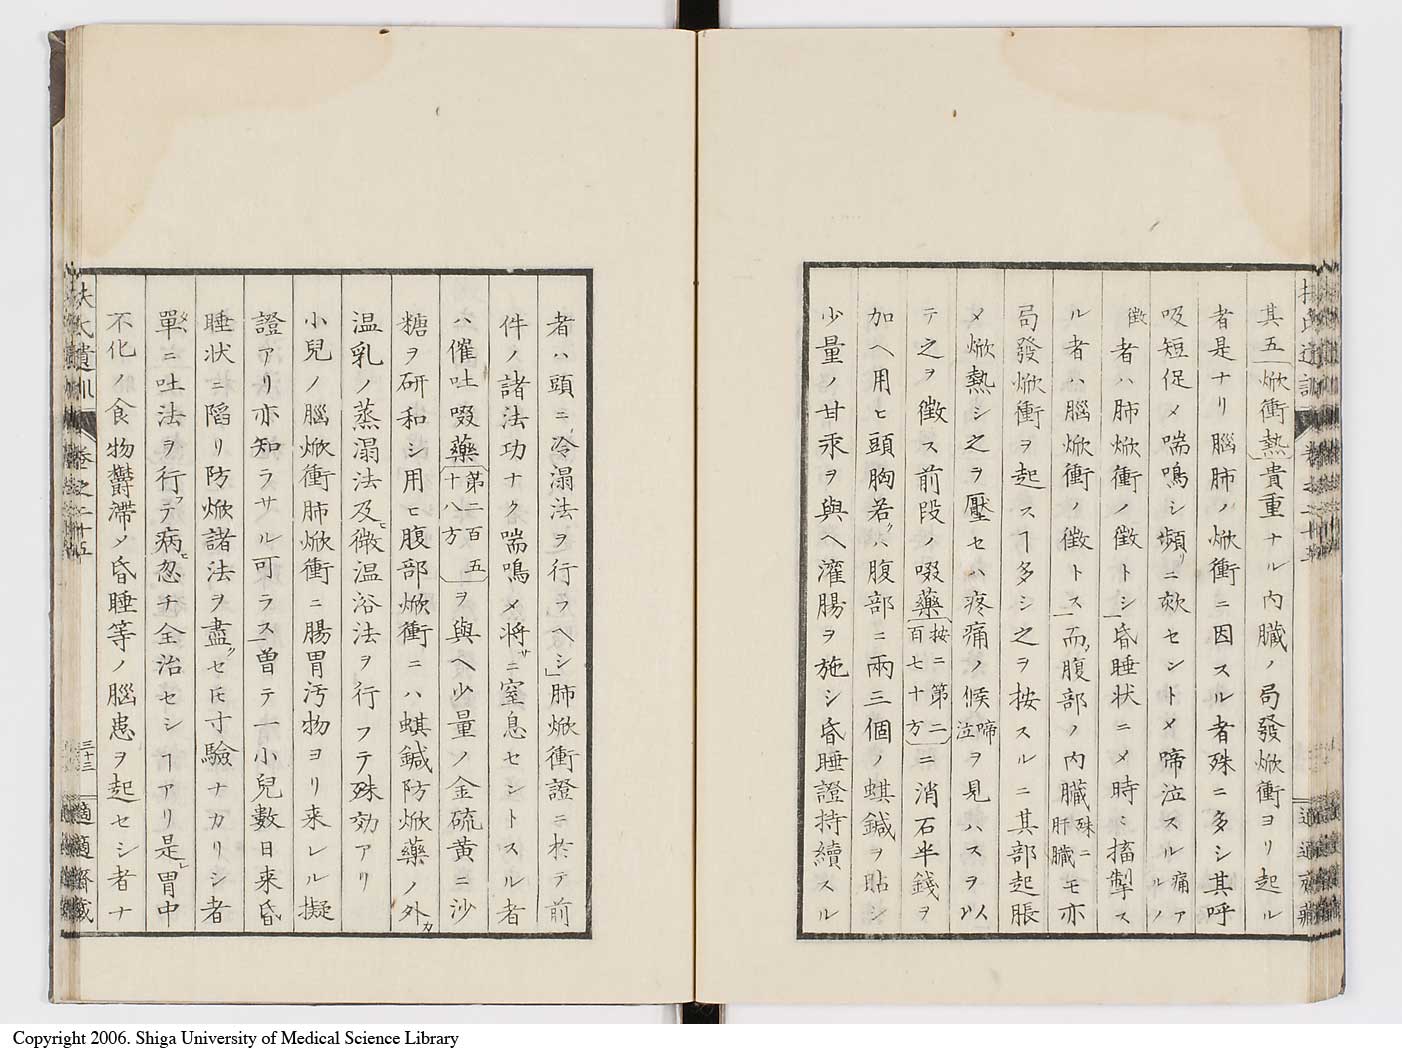 其五〔焮衝熱〕貴重ナル内臓ノ局發焮衝ヨリ起ル
者是ナリ腦肺ノ焮衝ニ因スル者殊ニ多シ其呼
吸短促〆喘鳴シ頻リニ欬セントメ啼泣スル痛アルノ
徴者ハ肺焮衝ノ徴トシ昏睡状ニメ時ミ搐掣ス
ル者ハ腦焮衝ノ徴トス而〆腹部ノ内臓殊ニ肝臓モ亦
局發焮衝ヲ起スヿ多シ之ヲ按スルニ其部起脹
〆焮熱シ之ヲ壓セハ疼痛ノ候啼泣ヲ見ハスヲ以
テ之ヲ徴ス前段ノ啜藥〔按ニ第二百七十方〕ニ消石半錢ヲ
加ヘ用ヒ頭胸若クハ腹部ニ兩三個ノ蜞鍼ヲ貼シ
少量ノ甘汞ヲ與ヘ灌腸ヲ施シ昏睡證持續スル
者ハ頭ニ冷溻法ヲ行ラヘシ」肺焮衝證ニ於テ前
件ノ諸法功ナク喘鳴〆將サニ窒息セントスル者
ハ催吐啜藥〔第二百五十八方〕ヲ與ヘ少量ノ金硫黄ニ沙
糖ヲ研和シ用ヒ腹部焮衝ニハ蜞鍼防焮藥ノ外カ
温乳ノ蒸溻法及ヒ微温浴法ヲ行フテ殊効アリ
小兒ノ腦焮衝肺焮衝ニ腸胃汚物ヨリ来レル擬
證アリ亦知ラサル可ラス」曽テ一小兒數日来昏
睡状ニ陷リ防焮諸法ヲ盡セ𪜈寸驗ナカリシ者
單ニ吐法ヲ行フテ病ヒ忽チ全治セシヿアリ是レ胃中
不化ノ食物欝滞〆昏睡等ノ腦患ヲ起セシ者ナ
扶氏遺訓
卷之二十五
三十三
適適齋藏
Copyright 2006. Shiga University of Medical Science Library